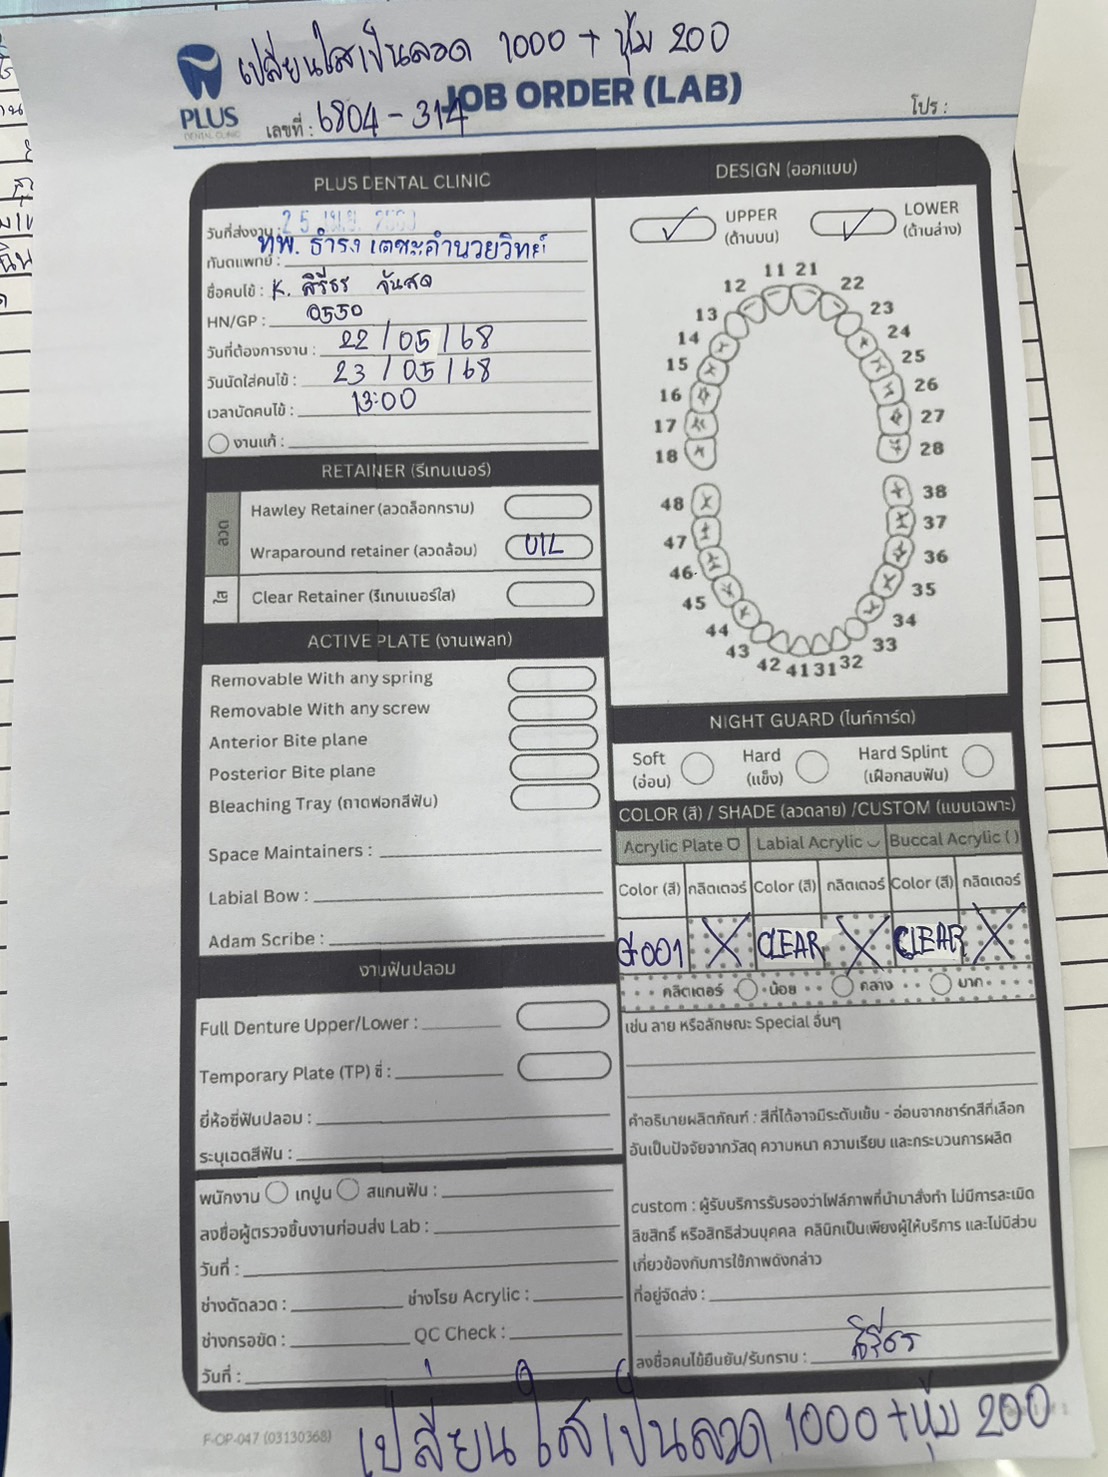 เปลี่ยนใสเป็นลวด 1000 + หุ้ม 200
PLUS
DENTAL CLINIC
JOB ORDER (LAB)
เลขที่ : 6804-314
โปร :
PLUS DENTAL CLINIC
วันที่ส่งงาน : 25 เม.ย.
ทันตแพทย์ : ทพ. ธำรง เตชะอำนวยวิทย์
ชื่อคนไข้ : K. สิรีธร จันสด
HN/GP : 0550
วันที่ต้องการงาน : 22 / 05 / 68
วันนัดใส่คนไข้ : 23 / 05 / 68
เวลานัดคนไข้ : 13:00
งานแก้ :
RETAINER (รีเทนเนอร์)
ลวด
Hawley Retainer (ลวดล็อกกราม)
Wraparound retainer (ลวดล้อม) U/L
ใส
Clear Retainer (รีเทนเนอร์ใส)
ACTIVE PLATE (งานเพลท)
Removable With any spring
Removable With any screw
Anterior Bite plane
Posterior Bite plane
Bleaching Tray (ถาดฟอกสีฟัน)
Space Maintainers :
Labial Bow :
Adam Scribe :
งานฟันปลอม
Full Denture Upper/Lower :
Temporary Plate (TP) ซี่ :
ยี่ห้อซี่ฟันปลอม :
ระบุเฉดสีฟัน :
พนักงาน เทปูน สแกนฟัน :
ลงชื่อผู้ตรวจชิ้นงานก่อนส่ง Lab :
วันที่ :
ช่างดัดลวด : ช่างโรย Acrylic :
ช่างกรอขัด : QC Check :
วันที่ :
DESIGN (ออกแบบ)
UPPER (ด้านบน)
LOWER (ด้านล่าง)
11 21
12 22
13 23
14 24
15 25
16 26
17 27
18 28
48 38
47 37
46 36
45 35
44 34
43 33
42 41 31 32
NIGHT GUARD (ไนท์การ์ด)
Soft (อ่อน)
Hard (แข็ง)
Hard Splint (เฝือกสบฟัน)
COLOR (สี) / SHADE (ลวดลาย) /CUSTOM (แบบเฉพาะ)
Acrylic Plate Labial Acrylic Buccal Acrylic ( )
Color (สี) กลิตเตอร์ Color (สี) กลิตเตอร์ Color (สี) กลิตเตอร์
G001 X CLEAR X CLEAR X
กลิตเตอร์ น้อย กลาง มาก
เช่น ลาย หรือลักษณะ Special อื่นๆ
คำอธิบายผลิตภัณฑ์ : สีที่ได้อาจมีระดับเข้ม - อ่อนจากชาร์ทสีที่เลือก
อันเป็นปัจจัยจากวัสดุ ความหนา ความเรียบ และกระบวนการผลิต
custom : ผู้รับบริการรับรองว่าไฟล์ภาพที่นำมาสั่งทำ ไม่มีการละเมิด
ลิขสิทธิ์ หรือสิทธิส่วนบุคคล คลินิกเป็นเพียงผู้ให้บริการ และไม่มีส่วน
เกี่ยวข้องกับการใช้ภาพดังกล่าว
ที่อยู่จัดส่ง :
ลงชื่อคนไข้ยืนยัน/รับทราบ : สิรีธร
F-OP-047 (03130368)
เปลี่ยนใสเป็นลวด 1000 + หุ้ม 200